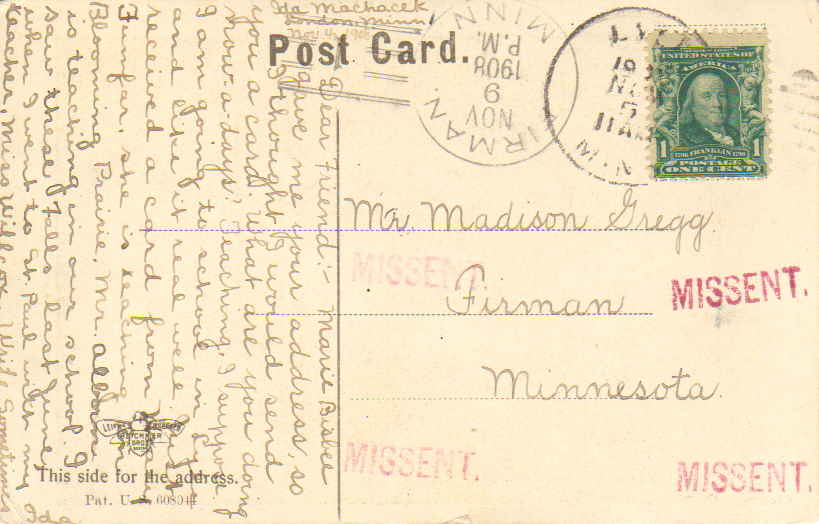 Ida Machacek
London, Minn
Nov 4, 1908
Post Card.
FIRMAN MINN.
NOV
9
P.M.
1908
NOV
11 AM
MINN
UNITED STATES OF
AMERICA
1 1
FRANKLIN
POSTAGE
ONE CENT
Mr. Madison Gregg
Firman
Minnesota.
MISSENT.
MISSENT.
MISSENT.
MISSENT.
Dear Friend:- Marie Bisbee
gave me your address, so
I thought I would send
you a card. What are you doing
now-a-days? Teaching, I suppose
I am going to school in
and like it real well. Just
received a card from
Funfar, she is teaching
Blooming Prairie. Mr. Alborn
is teaching in our school. I
saw these Falls last June
when I went to St. Paul with my
teacher, Miss Willcox. Write Sometimes
Ida
This side for the address.
Pat. U. S.